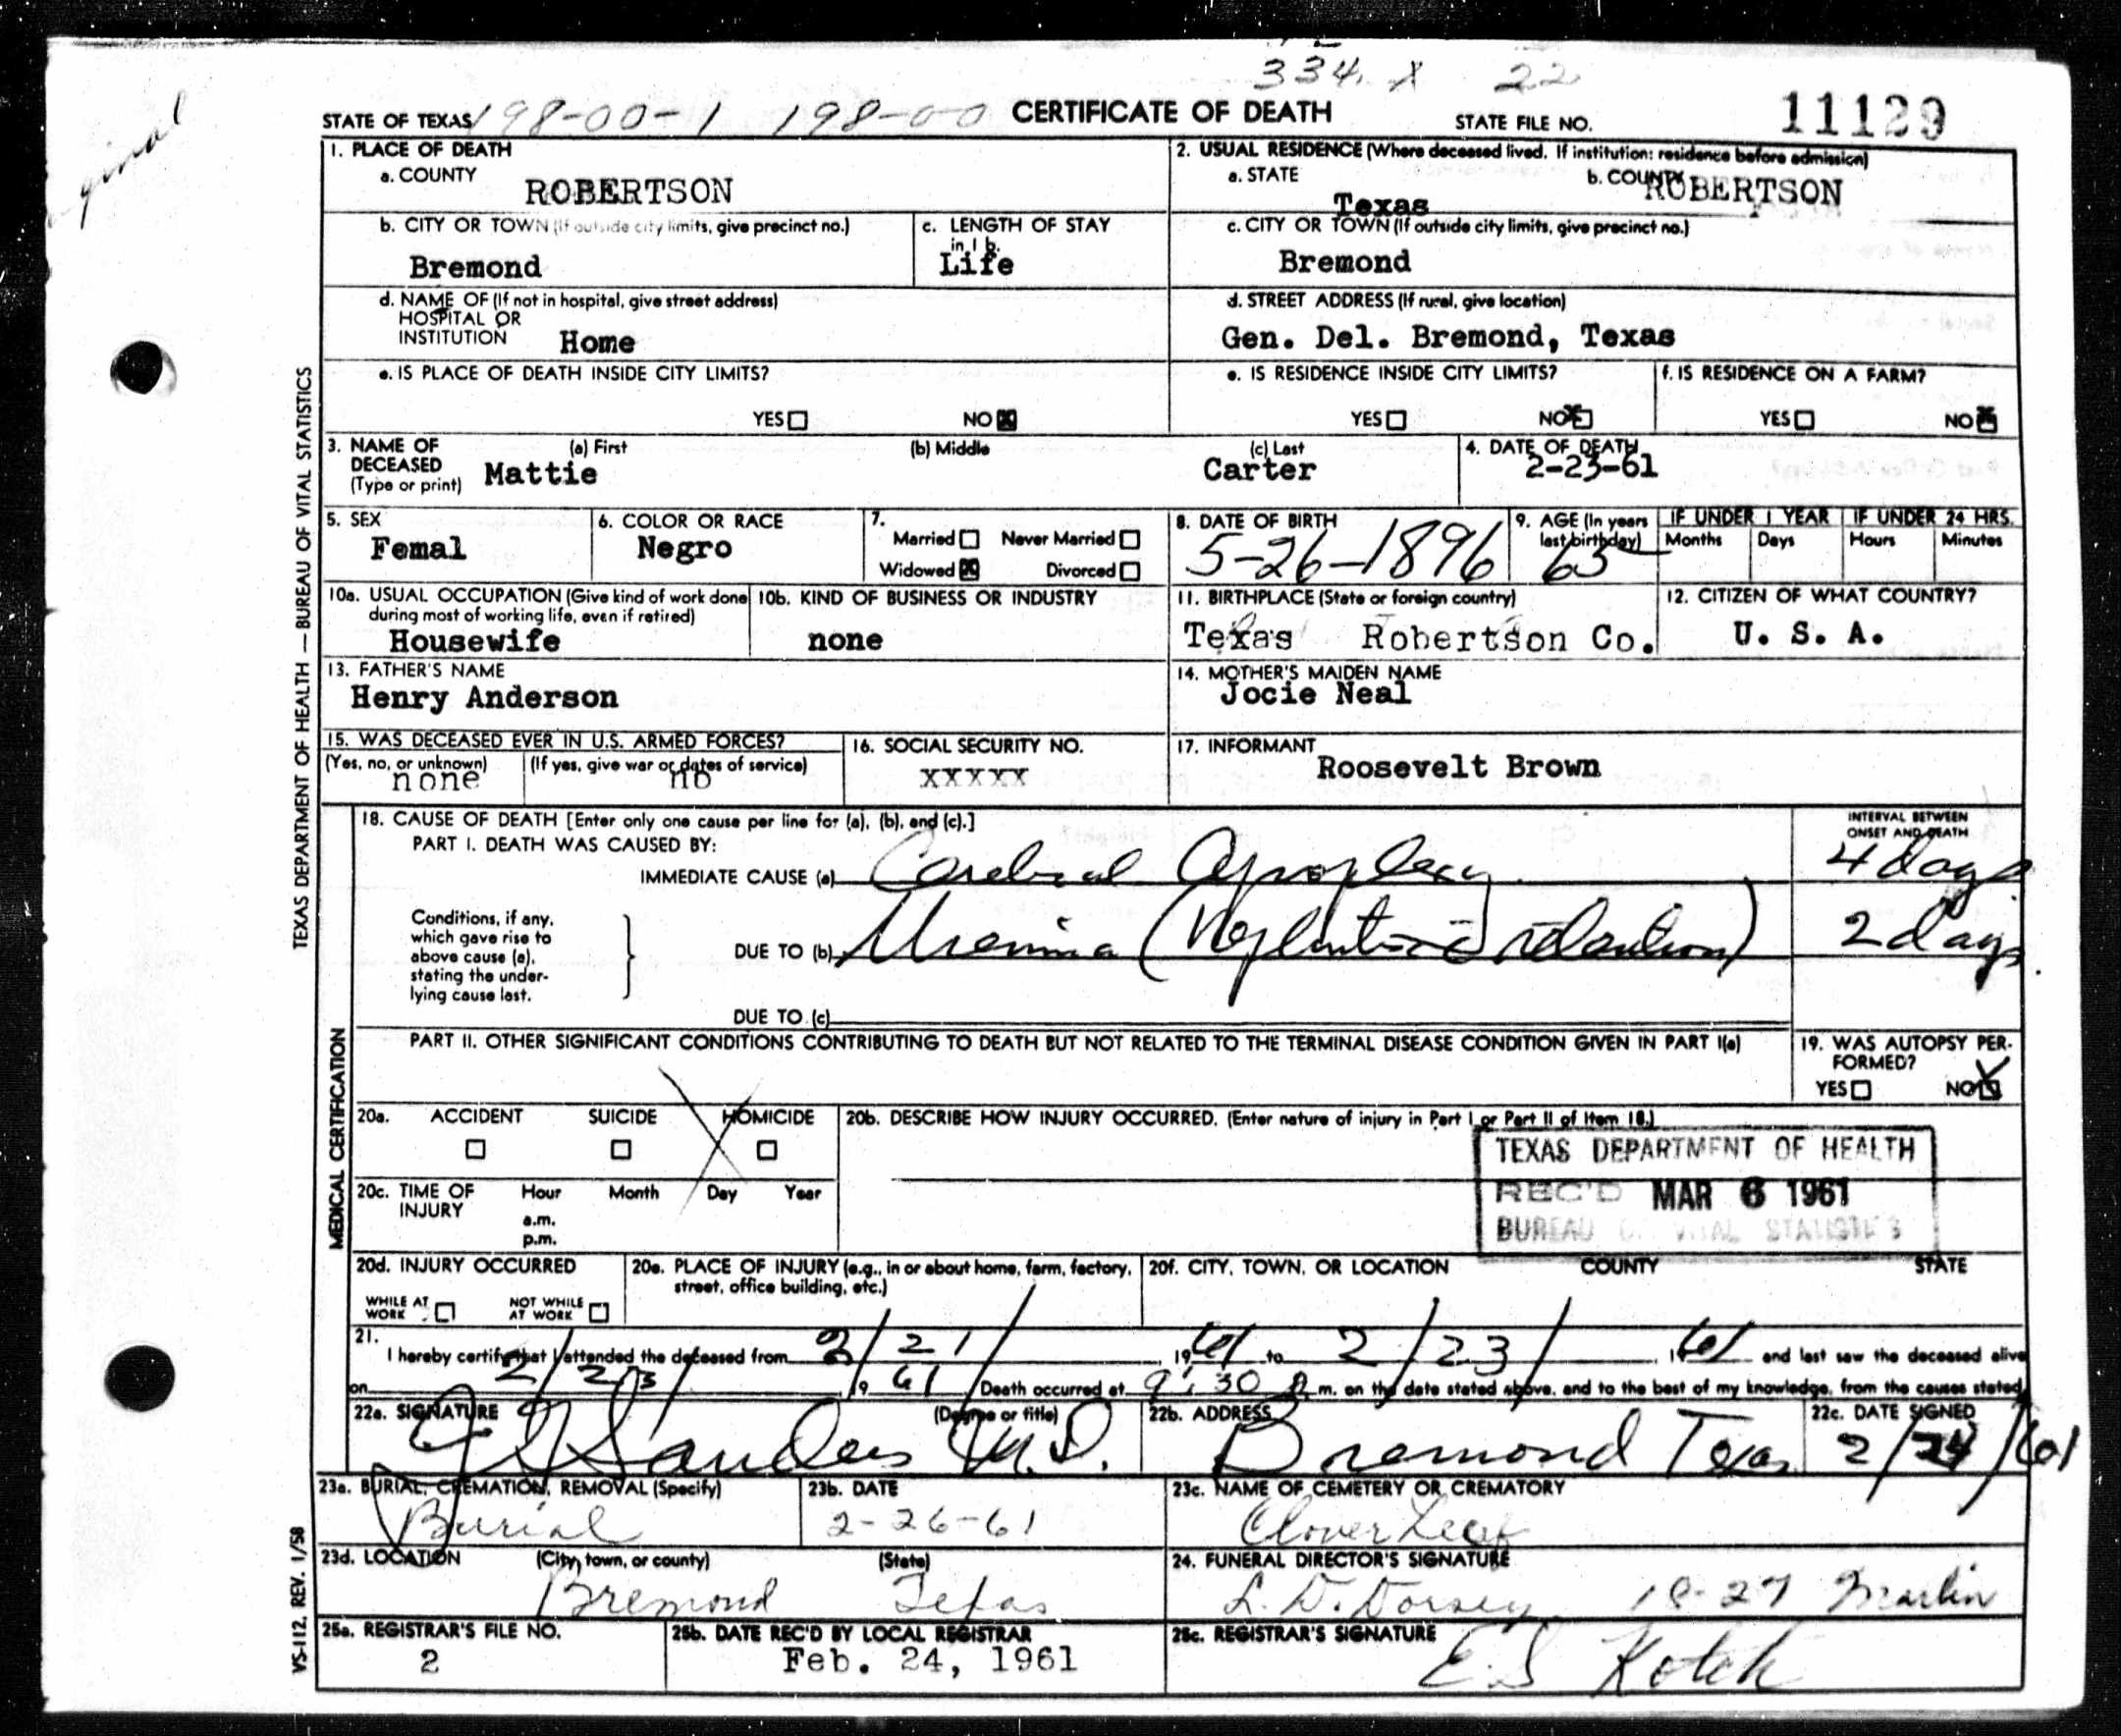 334. X 22
STATE OF TEXAS 198-00-1 198-00 CERTIFICATE OF DEATH STATE FILE NO. 11129
1. PLACE OF DEATH
a. COUNTY ROBERTSON
2. USUAL RESIDENCE (Where deceased lived. If institution: residence before admission)
a. STATE Texas b. COUNTY ROBERTSON
b. CITY OR TOWN (If outside city limits, give precinct no.) Bremond
c. LENGTH OF STAY in 1 b. Life
c. CITY OR TOWN (If outside city limits, give precinct no.) Bremond
d. NAME OF (If not in hospital, give street address)
HOSPITAL OR
INSTITUTION Home
d. STREET ADDRESS (If rural, give location)
Gen. Del. Bremond, Texas
e. IS PLACE OF DEATH INSIDE CITY LIMITS?
YES NO
e. IS RESIDENCE INSIDE CITY LIMITS?
YES NO
f. IS RESIDENCE ON A FARM?
YES NO
3. NAME OF DECEASED (Type or print) (a) First Mattie (b) Middle (c) Last Carter
4. DATE OF DEATH 2-23-61
5. SEX Femal
6. COLOR OR RACE Negro
7. Married Never Married
Widowed Divorced
8. DATE OF BIRTH 5-26-1896
9. AGE (In years last birthday) 65
IF UNDER 1 YEAR Months Days
IF UNDER 24 HRS. Hours Minutes
10a. USUAL OCCUPATION (Give kind of work done during most of working life, even if retired)
Housewife
10b. KIND OF BUSINESS OR INDUSTRY
none
11. BIRTHPLACE (State or foreign country)
Texas Robertson Co.
12. CITIZEN OF WHAT COUNTRY?
U. S. A.
13. FATHER'S NAME
Henry Anderson
14. MOTHER'S MAIDEN NAME
Jocie Neal
15. WAS DECEASED EVER IN U.S. ARMED FORCES?
(Yes, no, or unknown) none
(If yes, give war or dates of service) no
16. SOCIAL SECURITY NO.
XXXXX
17. INFORMANT
Roosevelt Brown
18. CAUSE OF DEATH [Enter only one cause per line for (a), (b), and (c).]
PART I. DEATH WAS CAUSED BY:
IMMEDIATE CAUSE (a) Cerebral Apoplexy
INTERVAL BETWEEN ONSET AND DEATH
4 days
Conditions, if any,
which gave rise to
above cause (a),
stating the under-
lying cause last.
DUE TO (b) Uremia ( retention)
2 days
DUE TO (c)
PART II. OTHER SIGNIFICANT CONDITIONS CONTRIBUTING TO DEATH BUT NOT RELATED TO THE TERMINAL DISEASE CONDITION GIVEN IN PART I(a)
19. WAS AUTOPSY PER-
FORMED?
YES NO
20a. ACCIDENT SUICIDE HOMICIDE
20b. DESCRIBE HOW INJURY OCCURRED. (Enter nature of injury in Part I or Part II of Item 18.)
TEXAS DEPARTMENT OF HEALTH
REC'D MAR 6 1961
BUREAU OF VITAL STATISTICS
20c. TIME OF INJURY Hour Month Day Year
a.m.
p.m.
20d. INJURY OCCURRED
WHILE AT WORK NOT WHILE AT WORK
20e. PLACE OF INJURY (e.g., in or about home, farm, factory, street, office building, etc.)
20f. CITY, TOWN, OR LOCATION COUNTY STATE
21.
I hereby certify that I attended the deceased from 2/21/, 1961 to 2/23/, 1961 and last saw the deceased alive
on 2/23/, 1961. Death occurred at 9:30 A. m. on the date stated above, and to the best of my knowledge, from the causes stated.
22a. SIGNATURE (Degree or title)
Sanders M.D.
22b. ADDRESS
Bremond Texas
22c. DATE SIGNED
2/24/61
23a. BURIAL, CREMATION, REMOVAL (Specify)
Burial
23b. DATE
2-26-61
23c. NAME OF CEMETERY OR CREMATORY
Clover Leaf
23d. LOCATION (City, town, or county) (State)
Bremond Texas
24. FUNERAL DIRECTOR'S SIGNATURE
L. D. Dorsey Marlin
25a. REGISTRAR'S FILE NO.
2
25b. DATE REC'D BY LOCAL REGISTRAR
Feb. 24, 1961
25c. REGISTRAR'S SIGNATURE
E. S Kotch
TEXAS DEPARTMENT OF HEALTH — BUREAU OF VITAL STATISTICS
MEDICAL CERTIFICATION
VS-112. REV. 1/58